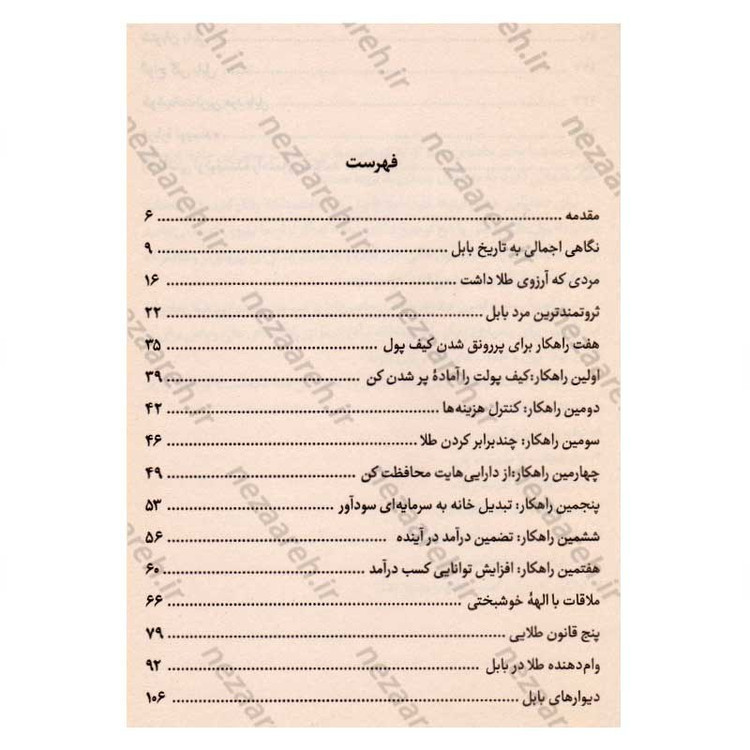 فهرست
مقدمه ........ ۶
نگاهی اجمالی به تاریخ بابل ........ ۹
مردی که آرزوی طلا داشت ........ ۱۶
ثروتمندترین مرد بابل ........ ۲۲
هفت راهکار برای پررونق شدن کیف پول ........ ۳۵
اولین راهکار:کیف پولت را آمادهٔ پر شدن کن ........ ۳۹
دومین راهکار: کنترل هزینه‌ها ........ ۴۲
سومین راهکار: چندبرابر کردن طلا ........ ۴۶
چهارمین راهکار:از دارایی‌هایت محافظت کن ........ ۴۹
پنجمین راهکار: تبدیل خانه به سرمایه‌ای سودآور ........ ۵۳
ششمین راهکار: تضمین درآمد در آینده ........ ۵۶
هفتمین راهکار: افزایش توانایی کسب درآمد ........ ۶۰
ملاقات با الههٔ خوشبختی ........ ۶۶
پنج قانون طلایی ........ ۷۹
وام‌دهنده طلا در بابل ........ ۹۲
دیوارهای بابل ........ ۱۰۶
nezaareh.ir